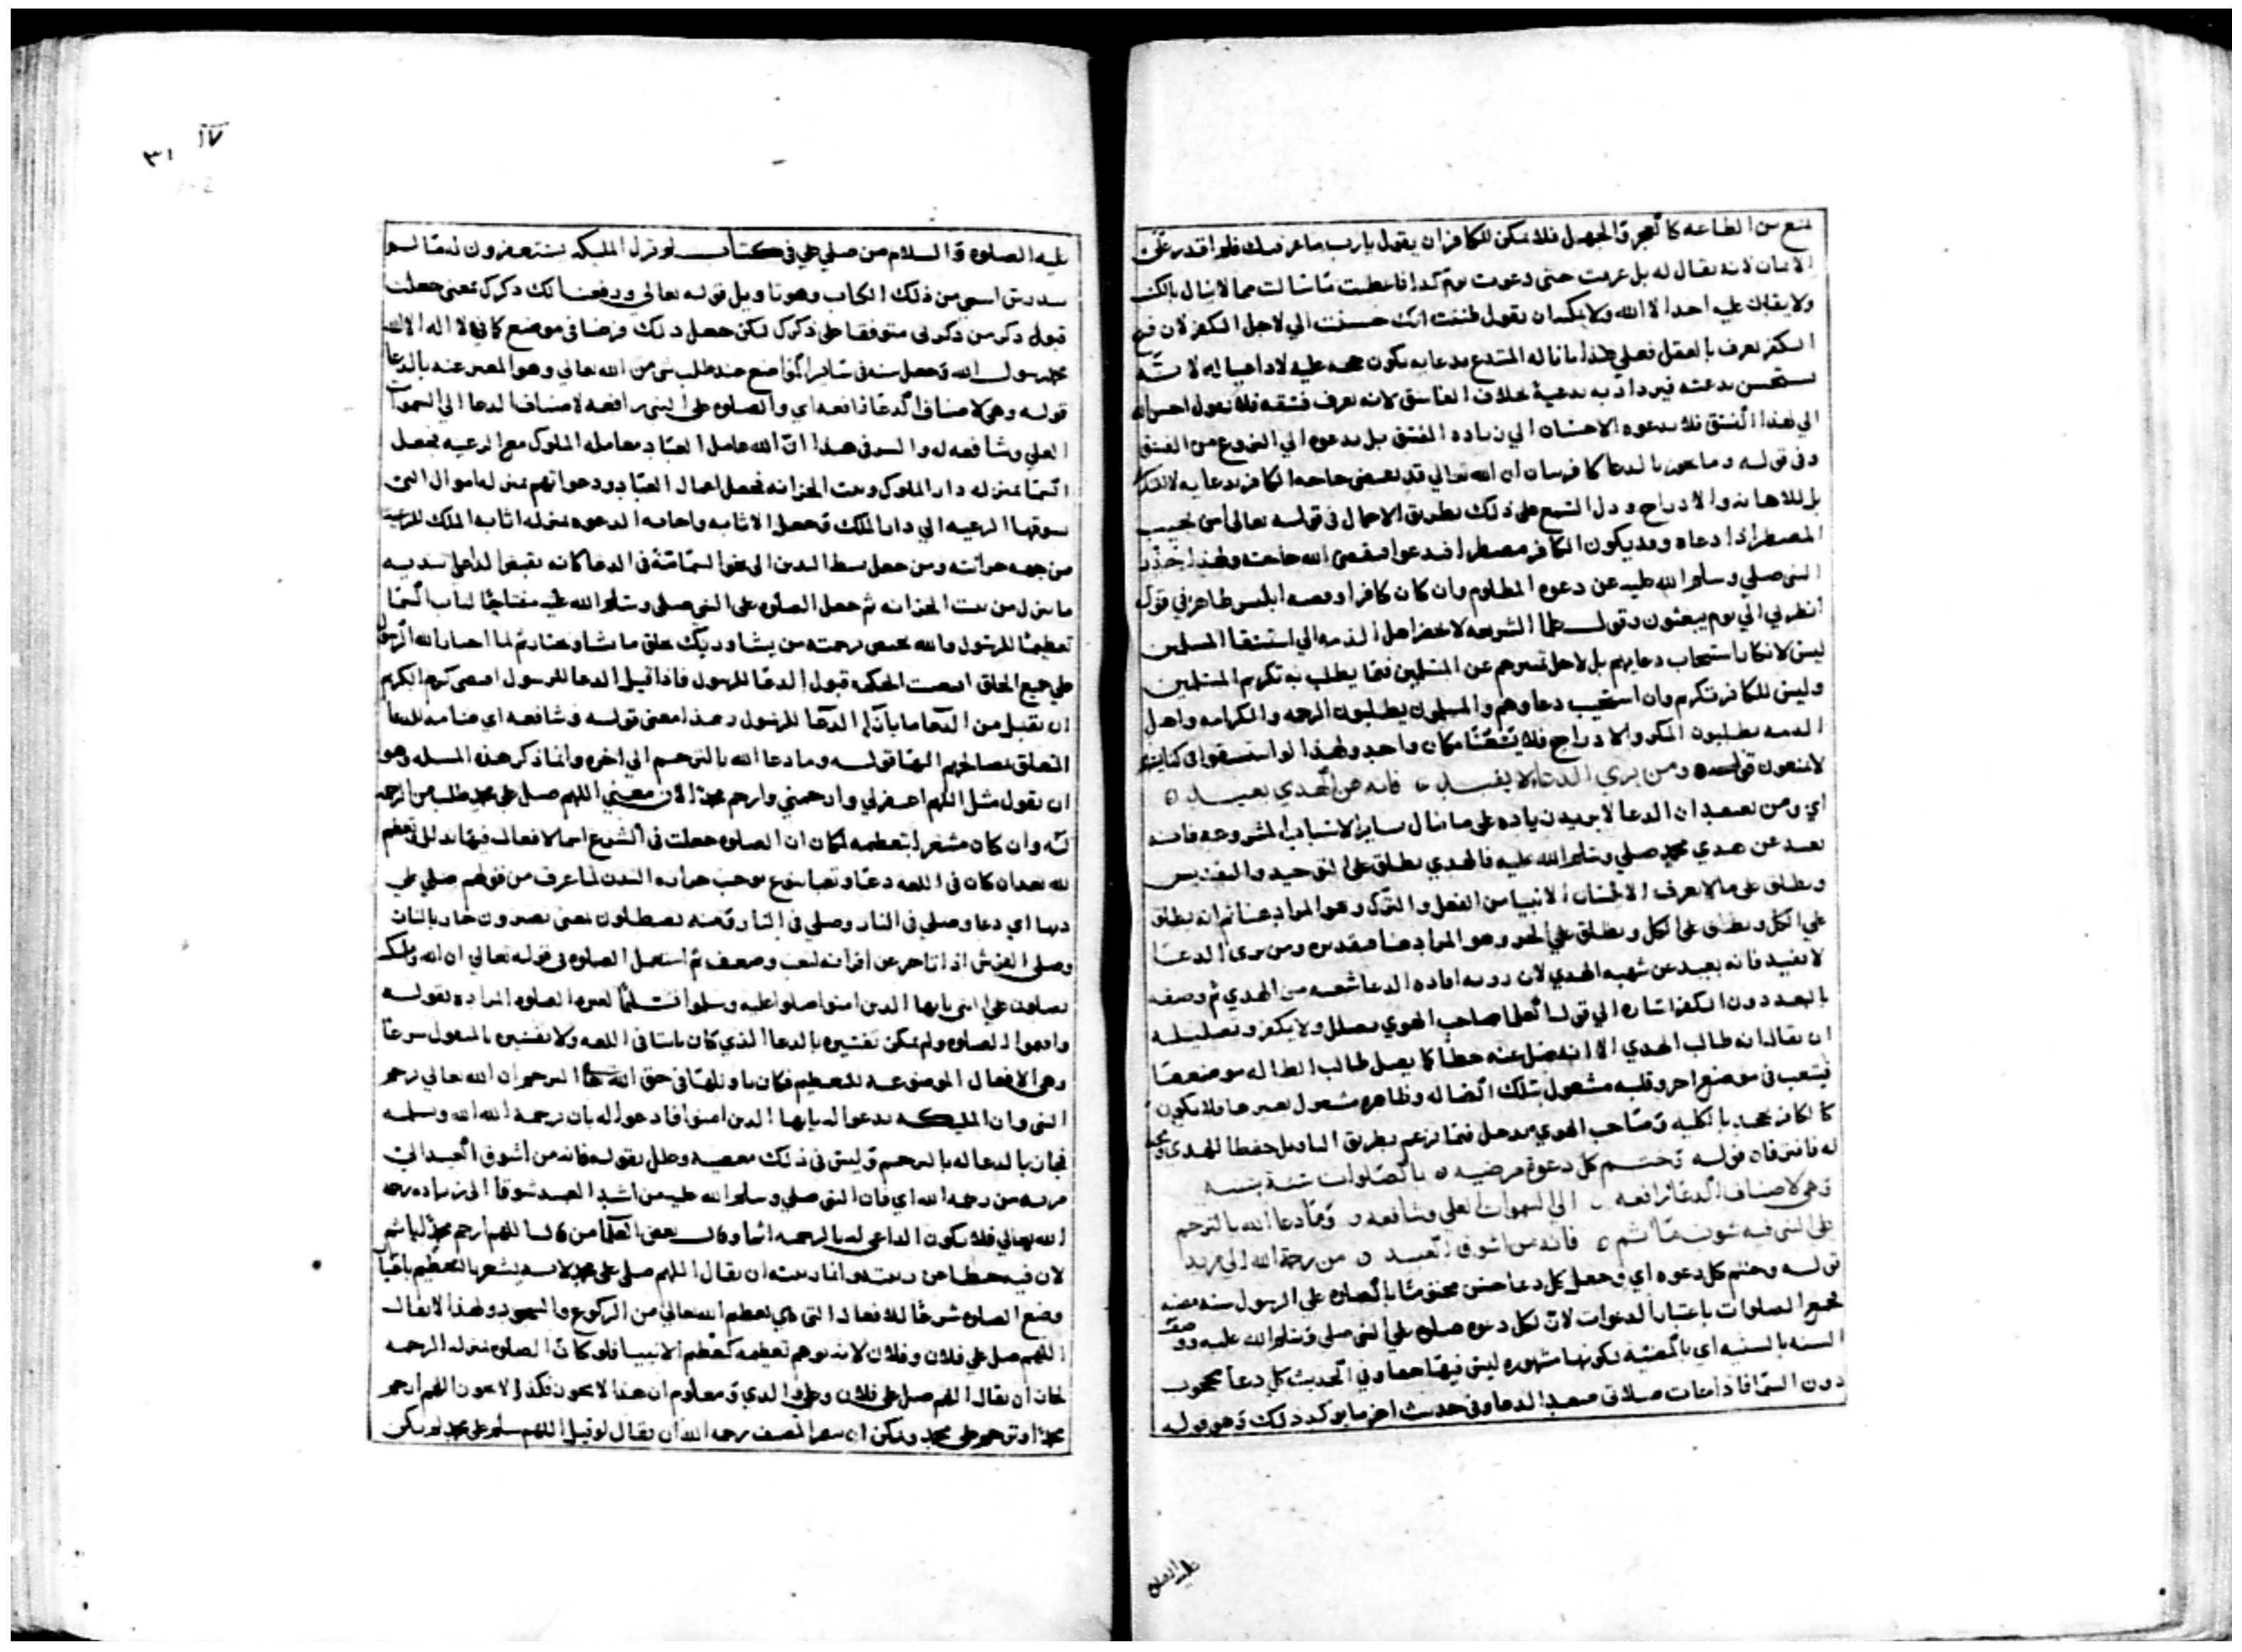 لمنع من الطاعه كالعجز والجهل فلا يمكن للكافر ان يقول يارب ما عرفتك فلم اقدر على
الايمان لانه يقال له بل عرفت حتى دعوت يوم كذا فاعطيت ما سالت مما لا ينال بالكسب
ولا يقابل عليه احد الا الله ولا يمكنه ان يقول ظننت انك حسنت الي لاجل الكفر لان قبح
الكفر يعرف بالعقل فعلي هذا ما ناله المبتدع بدعايه يكون حجه عليه لا داعيا له لانه
يستحسن بدعته فيزداد به بدعية بخلاف الفاسق لانه يعرف فسقه فلا يقول احسن الله
الي لهذا الفسق فلا يدعوه الاحسان الي زياده الفسق بل يدعوه الي النزوع من الفسق
وفي قوله وما يجوز بالدعا كافر بيان ان الله تعالي قد يقضي حاجه الكافر بدعايه لا للتكريم
بل للاهانه والادراج ودل السمع على ذلك بطريق الاجمال في قوله تعالى امن يجيب
المضطر اذا دعاه وقد يكون الكافر مضطرا فيدعوا فيقضى الله حاجته ولهذا حذر
النبي صلى وسلم الله عليه عن دعوه المظلوم وان كان كافرا وقصه ابليس ظاهر في قوله
انظرني الي يوم يبعثون وقول علما الشريعه لا يحضر اهل الذمه الي استسقا المسلمين
ليس لانكار استجاب دعايهم بل لاجل تميزهم عن المسلمين فيما يطلب به تكريم المسلمين
وليس للكافر تكريم وان استجيب دعاوهم والمسلمون يطلبون الرحمه والكرامه واهل
الذمه يطلبون المكر والادراج فلا يسعنا مكان واحد ولهذا لو استسقوا في كنايسهم
لا يمنعون قوله ومن يرى الدعاء لا يفيد فانه من الهدي بعيد
اي ومن يعتقد ان الدعا لا يزيد زياده على ما ينال ساير الاسباب المشروعه فانه
بعيد عن هدي محمد صلى وسلم الله عليه فالهدي يطلق على التوحيد والتقديس
ويطلق على ما لا يعرف الا بلسان الانبيا من الفعل والترك وهو المراد هنا ثم انه يطلق
علي الكل ويطلق على لكل ويطلق علي الجزو وهو المراد هنا فيقدس ومن يرى الدعا
لا يفيد فانه بعيد عن شهبه الهدي لان رويه افاده الدعا شعبه من الهدي ثم وصفه
بالبعد دون الكفر اشاره الي قول العلما صاحب الهوي يضلل ولا يكفر وتضليله
ان يقال انه طالب الهدي الا انه ضل عنه خطا كما يضل طالب الضاله موضعها
فيتعب في موضع اخر وقلبه مشغول بتلك الضاله وظاهره مشغول بغيرها فلا يكون
كالكافر يجحد بالكليه وصاحب الهوي يدخل فيما يزعم بطريق التاويل حفظا للهدي
له فافترقا قوله وتختم كل دعوة مرضيه بالصلوات سنة سنيه
وهي لاصناف الدعا رافعه الي السموات العلي وشافعه وما دعا الله بالترحم
على النبي فيه شوب ماثم فانه من اشوق العبيد من رحمة الله الى مزيد
قوله وختم كل دعوه اي وجعل كل دعا حسن مختوما بالصلوه علي الرسول سنه مضيه
جمع الصلوات باعتبار الدعوات لان لكل دعوه صلوه علي النبي صلى وسلم الله عليه ووصف
السنه بالسنيه اي بالمضيه لكونها مشهوره ليس فيها خفا وفي الحديث كل دعا محجوب
دون السما فاذا جات صلاتي صعد الدعا وفي حديث اخر ما يوكد ذلك وهو قوله
عليه الصلوه
١٧
٣١
عليه الصلوه والسلام من صلي علي في كتاب لم تزل المليكه يستغفرون له ما لم
يندرس اسمي من ذلك الكتاب وهو تاويل قوله تعالي ورفعنا لك ذكرك يعني جعلت
قبول ذكر من ذكرني متوقفا على ذكرك لكن جعل ذلك فرضا في موضع كما في لا اله الا الله
محمد رسول الله وجعل سنه في ساير المواضع عند طلب شي من الله تعالي وهو المعبر عنه بالدعا
قوله وهي لاصناف الدعا رافعه اي والصلوه على النبي رافعه لاصناف الدعا الي السموات
العلي وشافعه له والسر في هذا ان الله عامل العباد معامله الملوك مع الرعيه فجعل
السما بمنزله دار الملوك وبيت الخزانه فجعل اعمال العباد ودعواتهم بمنزله اموال التي
يسوقها الرعيه الي دار الملك وجعل الاثابه واجابه الدعوه بمنزله اثابه الملك للرعيه
من جهه خزانته ومن جعل بسط اليدين الى نحو السما سنة في الدعا كانه يقبض الداعي بيديه
ما ينزل من بيت الخزانه ثم جعل الصلوه على النبي صلى وسلم الله عليه مفتاحا لباب السما
تعظيما للرسول والله يختص برحمته من يشا وربك يخلق ما يشا ويختار ثم لما اختار الله الرسول
علي جميع الخلق اقتضت الحكمه قبول الدعا للرسول فاذا قبل الدعا للرسول اقتضى كرم الكريم
ان يقبل من الدعا ما بازا الدعا للرسول وهذا معنى قوله وشافعه اي ضامه للدعا
المتعلق بمصالحهم اليها قوله وما دعا الله بالترحم الي اخره وانما ذكر هذه المسله وهو
ان يقول مثل اللهم اغفر لي وارحمني وارحم محمدا لان معنى اللهم صل على محمد طلب من الرحمه
له وان كان مشعرا بتعظيمه لمكان ان الصلوه جعلت في الشرع اسما لافعال فيها بدن للتعظيم
لله بعد ان كان في اللغه دعا وتعبا بنوع يوجب حراره البدن لما عرف من قولهم صلي علي
دنها اي دعا وصلي في النار وصلي في النار ومنه يصطلون يعني يصيرون حارا بالنار
وصلى الفرس اذا تاخر عن اقرانه لتعب وضعف ثم استعمل الصلوه في قوله تعالي ان الله ومليكته
يصلون علي النبي يايها الذين امنوا صلوا عليه وسلموا تسليما لغير الصلوه المراده بقوله
واقيموا الصلوه ولم يمكن تفسيره بالدعا الذي كان ثابتا في اللغه ولا تفسيره بالمنقول شرعا
وهي الافعال الموضوعه للتعظيم فكان تاويلها في حق الله الترحم ان الله تعالي يرحم
النبي وان المليكه يدعوا له يايها الذين امنوا فادعوا له بان رحمة الله الله وسلمه
فجاز بالدعا له بالترحم وليس في ذلك معصيه وعلل بقوله فانه من اشوق العبيد الى
مزيد من رحمه الله اي فان النبي صلى وسلم الله عليه من اشد العبيد شوقا الى زياده رحمه
الله تعالي فلا يكون الداعي له بالرحمه اثما وقال بعض العلما من قال اللهم ارحم محمدا ياثم
لان فيه حطا عن رتبته وانما رتبته ان يقال اللهم صل على محمد لانه يشعر بالتعظيم باعتبار
وضع الصلوه شرعا للافعال التي هي لعظيم الله تعالي من الركوع والسجود ولهذا لا يقال
اللهم صل علي فلان وفلان لانه يوهم تعظيمه كتعظيم الانبيا فلو كان الصلوه بمنزله الرحمه
لجاز ان يقال اللهم صل على فلان وعلى والدي ومعلوم ان هذا لا يجوز فكذا لا يجوز اللهم ارحم
محمدا وترحم على محمد ويمكن ان مراد المصنف رحمه الله ان يقال لو قيل اللهم سلم على محمد لم يكن